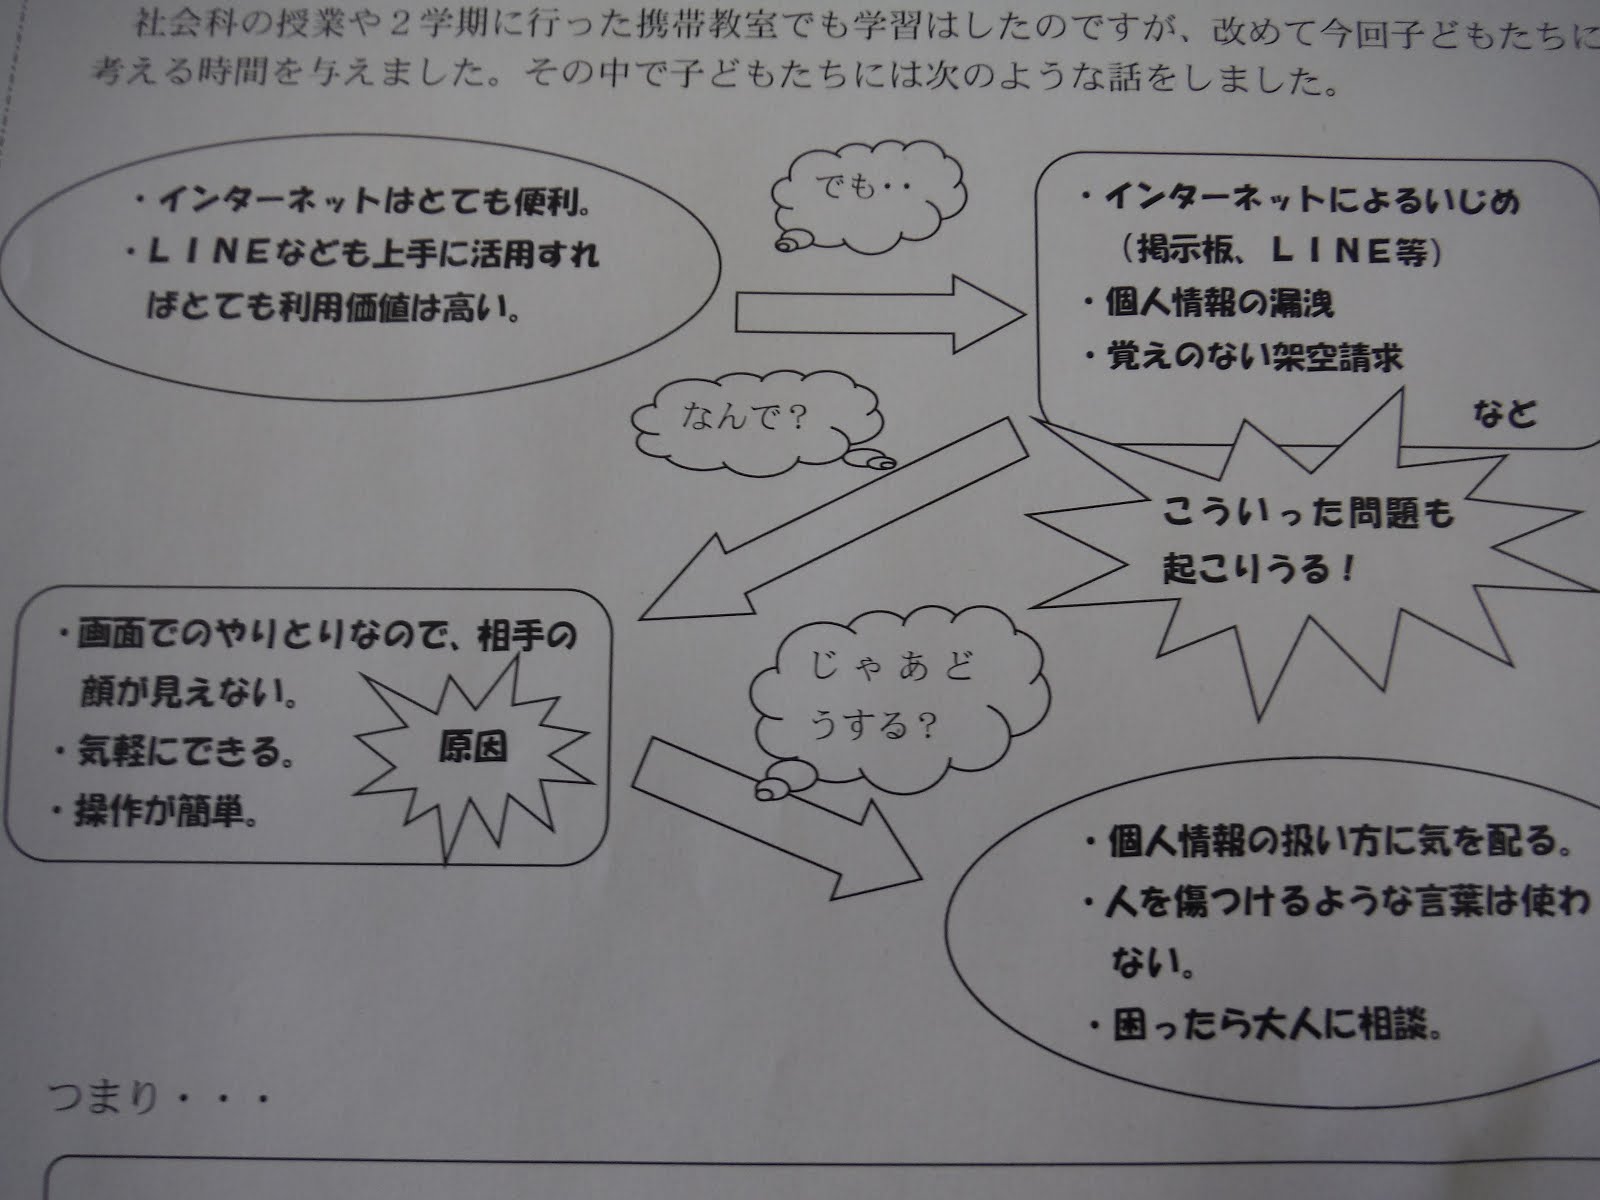 社会科の授業や２学期に行った携帯教室でも学習はしたのですが、改めて今回子どもたちに
考える時間を与えました。その中で子どもたちには次のような話をしました。
・インターネットはとても便利。
・ＬＩＮＥなども上手に活用すれ
ばとても利用価値は高い。
でも・・
・インターネットによるいじめ
（掲示板、ＬＩＮＥ等）
・個人情報の漏洩
・覚えのない架空請求
など
こういった問題も
起こりうる！
なんで？
・画面でのやりとりなので、相手の
顔が見えない。
・気軽にできる。
・操作が簡単。
原因
じゃあど
うする？
・個人情報の扱い方に気を配る。
・人を傷つけるような言葉は使わ
ない。
・困ったら大人に相談。
つまり・・・